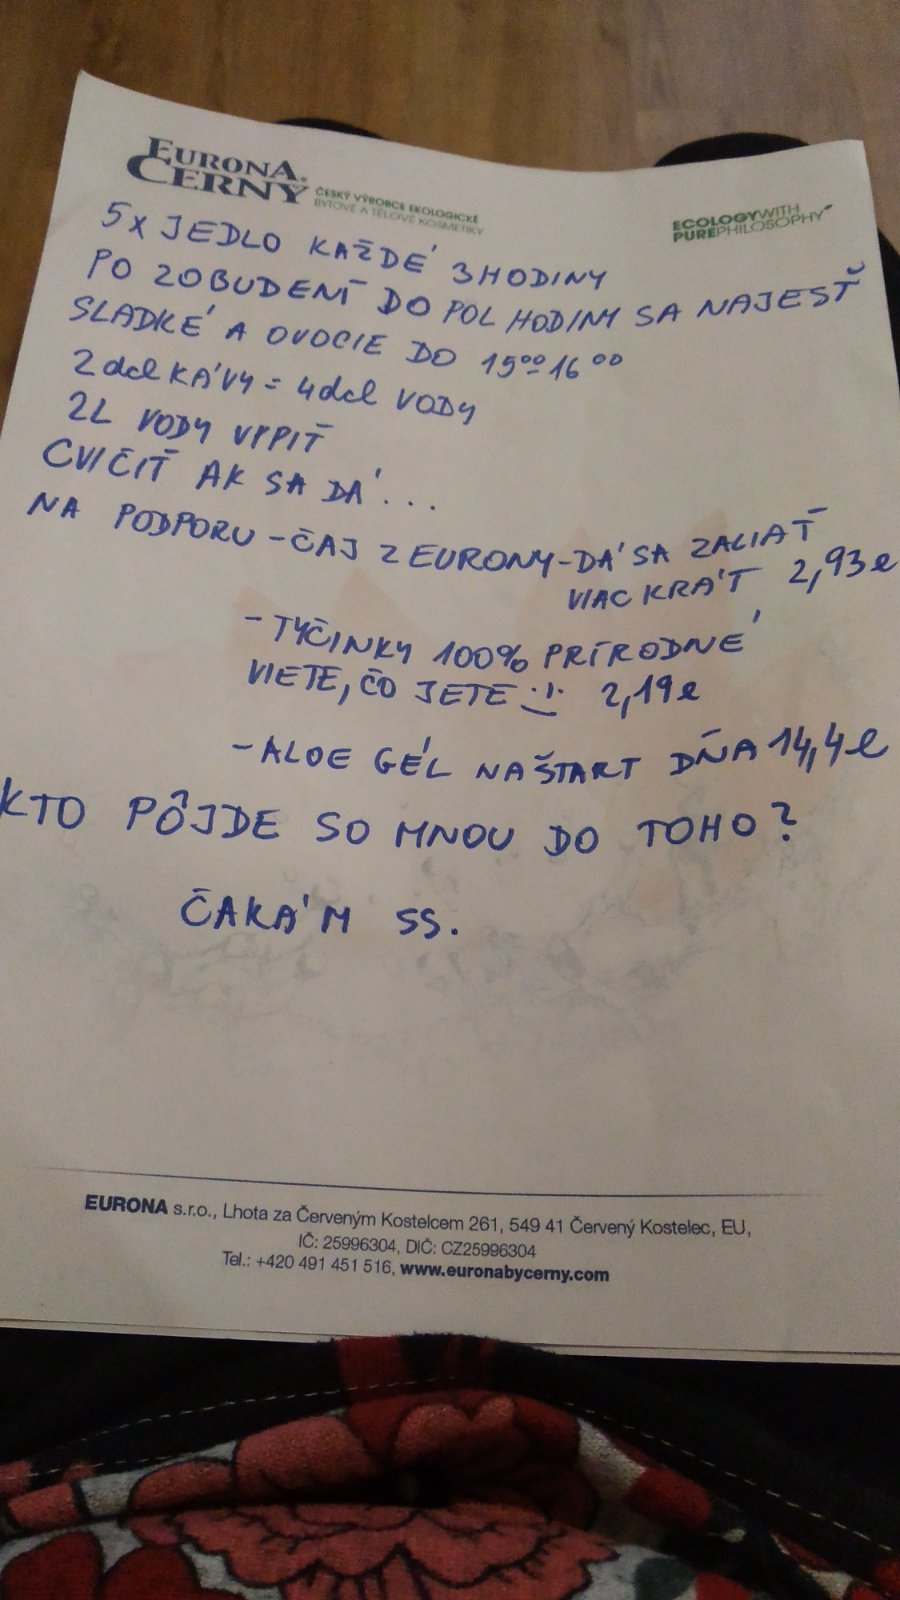 EURONA
CERNY
ČESKÝ VÝROBCE EKOLOGICKÉ
BYTOVÉ A TĚLOVÉ KOSMETIKY
ECOLOGYWITH
PUREPHILOSOPHY
5X JEDLO KAŽDÉ 3HODINY
PO ZOBUDENÍ DO POL HODINY SA NAJESŤ
SLADKÉ A OVOCIE DO 15⁰⁰-16⁰⁰
2 dcl KÁVY = 4dcl VODY
2L VODY VYPIŤ
CVIČIŤ AK SA DÁ...
NA PODPORU - ČAJ Z EURONY - DÁ SA ZALIAŤ
VIAC KRÁT 2,93e
- TYČINKY 100% PRÍRODNÉ
VIETE, ČO JETE :) 2,19e
- ALOE GÉL NAŠTART DŇA 14,4e
KTO PÔJDE SO MNOU DO TOHO?
ČAKÁM SS.
EURONA s.r.o., Lhota za Červeným Kostelcem 261, 549 41 Červený Kostelec, EU,
IČ: 25996304, DIČ: CZ25996304
Tel.: +420 491 451 516, www.euronabycerny.com